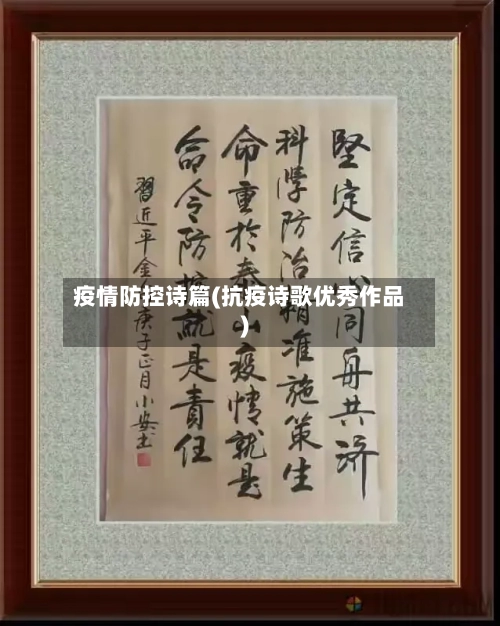 疫情防控诗篇(抗疫诗歌优秀作品
)
堅定信心同舟共济
科學防治精准施策生
命重於泰山疫情就是
命令防控就是責任
習近平金句庚子正月小安书